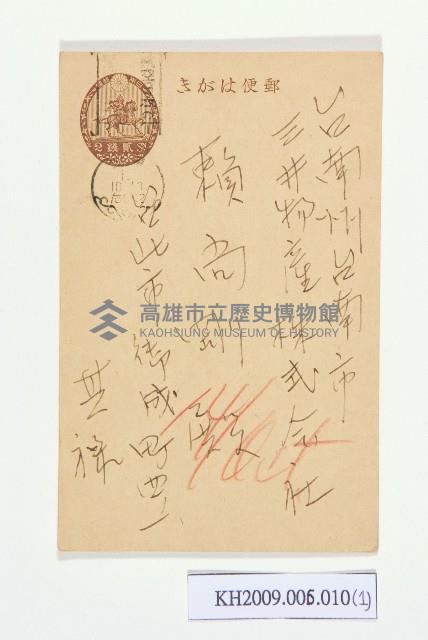 郵便はがき
貳錢
台南州台南市
三井物産株式会社
賴尚剛殿
台北市御成町四ノ二
其祿
高雄市立歷史博物館
KAOHSIUNG MUSEUM OF HISTORY
KH2009.006.010(1)